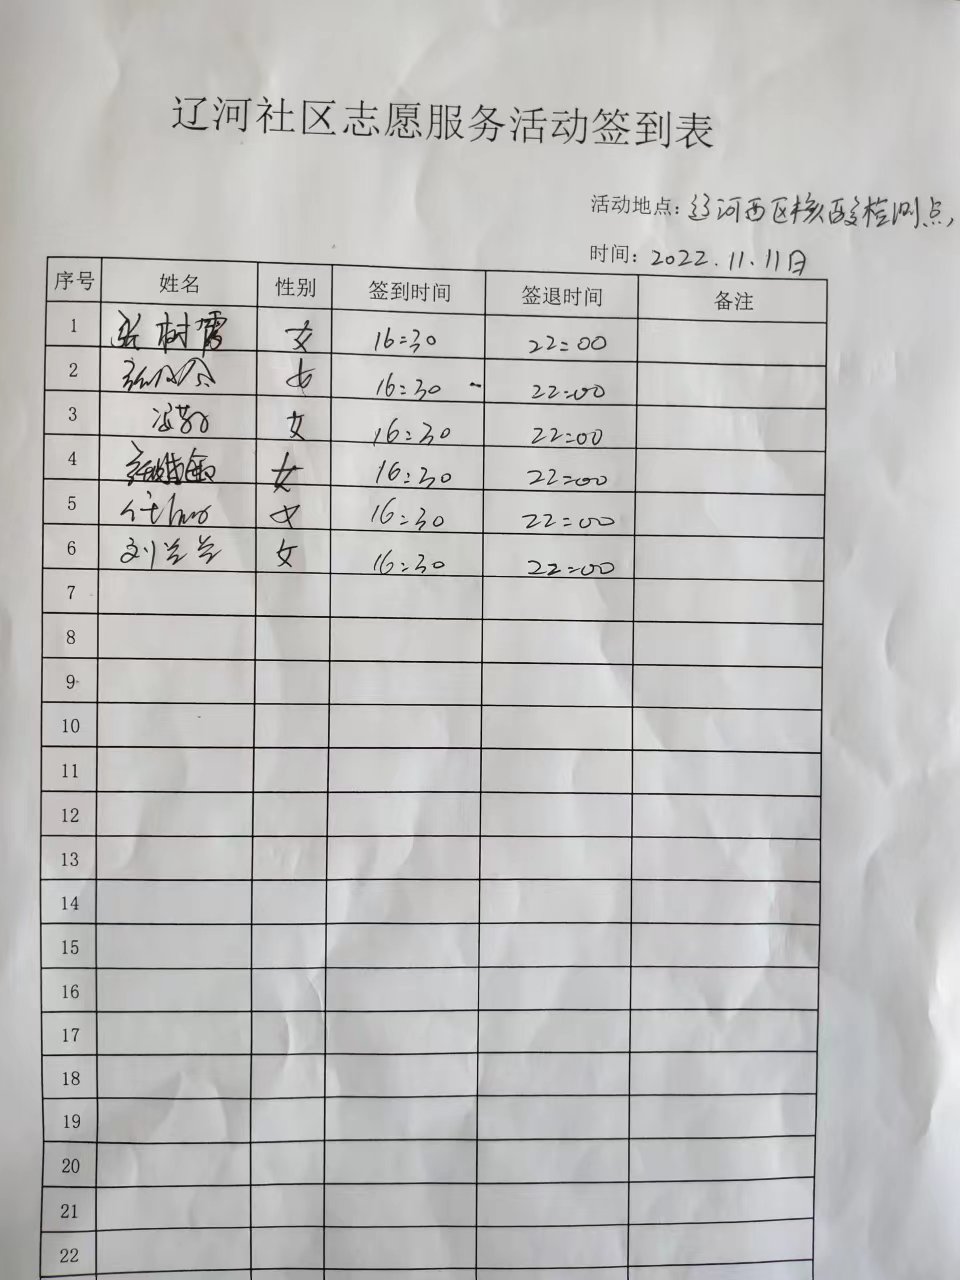 辽河社区志愿服务活动签到表
活动地点：辽河西区核酸检测点，
时间：2022.11.11日
序号 姓名 性别 签到时间 签退时间 备注
1 张树霄 女 16:30 22:00
2 女 16:30 - 22:00
3 女 16:30 22:00
4 女 16:30 22:00
5 女 16:30 22:00
6 刘兰兰 女 16:30 22:00
7
8
9
10
11
12
13
14
15
16
17
18
19
20
21
22